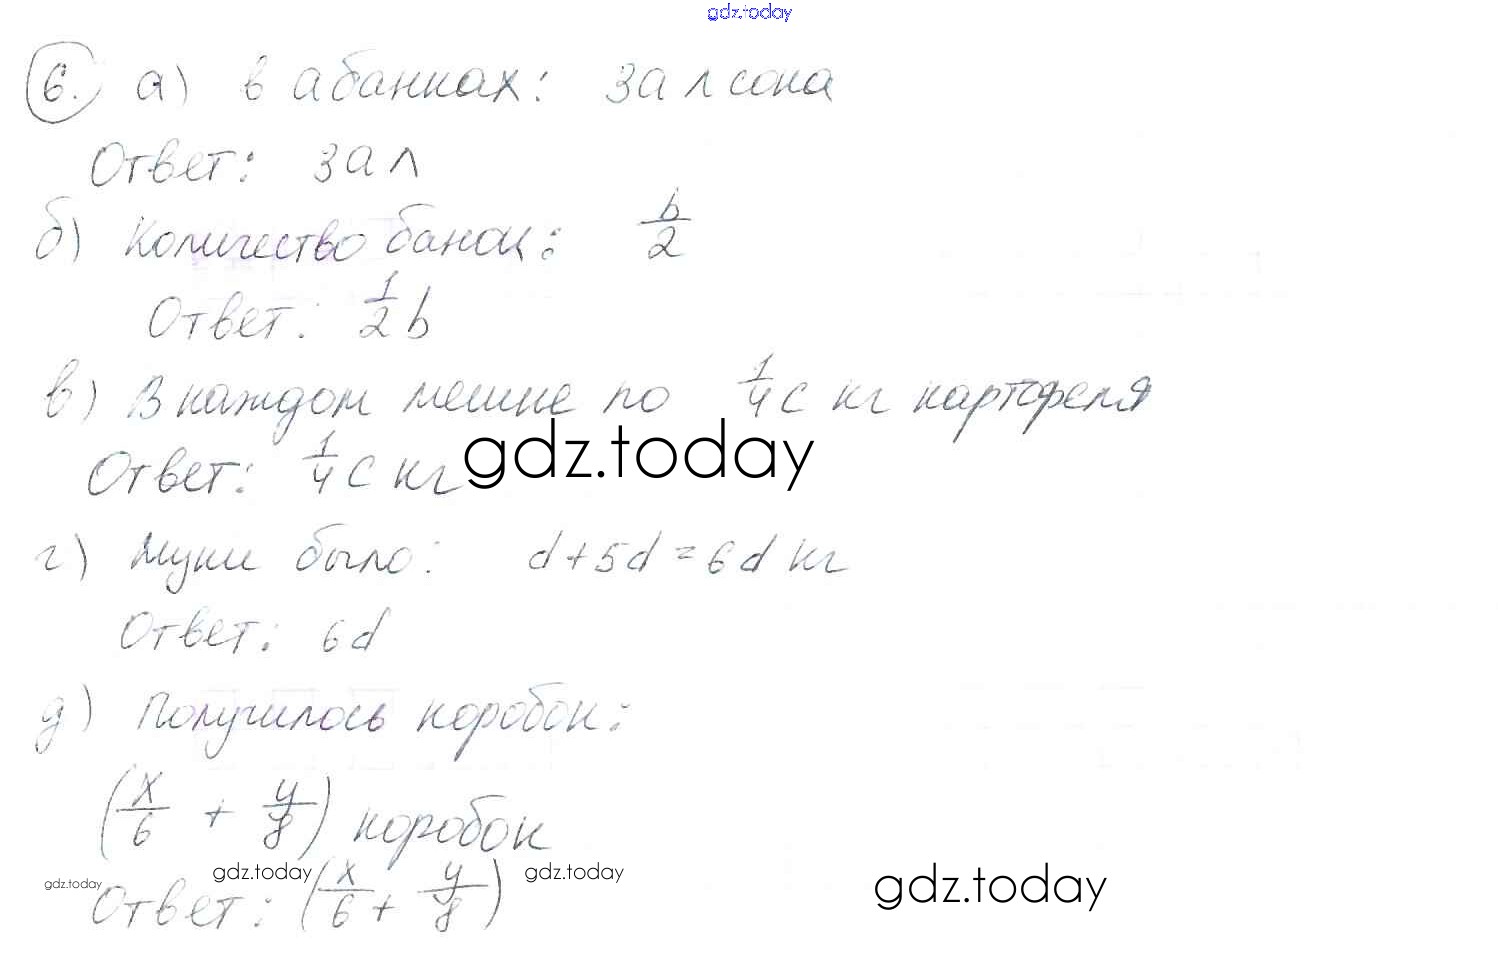 gdz.today
6. а) в a банках: 3a л сока
Ответ: 3a л
б) Количество банок: b/2
Ответ: 1/2 b
в) В каждом мешке по 1/4 c кг картофеля
gdz.today
Ответ: 1/4 c кг
г) Муки было: d + 5d = 6d кг
Ответ: 6d
д) Получилось коробок:
(x/6 + y/8) коробок
gdz.today gdz.today gdz.today gdz.today
Ответ: (x/6 + y/8)